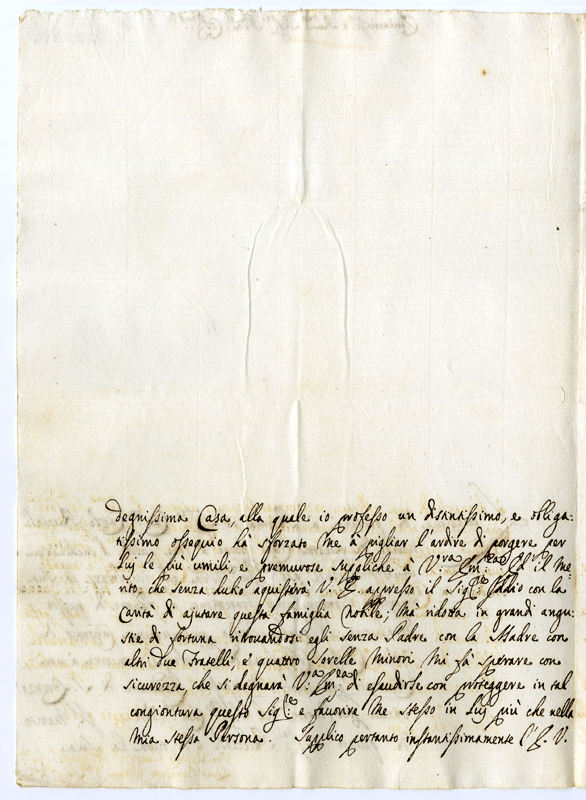 degnissima Casa, alla quale io professo un distintissimo, e obliga:
tissimo ossequio hà sforzato me à pigliar l'ardire di porgere per
Luj le più umili, e premurose suppliche à V:ra Em:za Ed il Me
rito, che senza dubio aquisterà V. E. appresso il Sig:re Iddio con la
Carità di ajutare questa famiglia nobile; mà ridotta in grandi angu:
stie di fortuna ritrovandosi egli senza Padre con la Madre con
altri due Fratelli, e quattro Sorelle minori mi fà sperare con
sicurezza, che si degnarà V:a Em:za di esaudirle con proteggere in tal
congiontura questo Sig:re e favorire me stesso in Luj più che nella
mia stessa Persona. Supplico pertanto instantissimamente l'E. V.